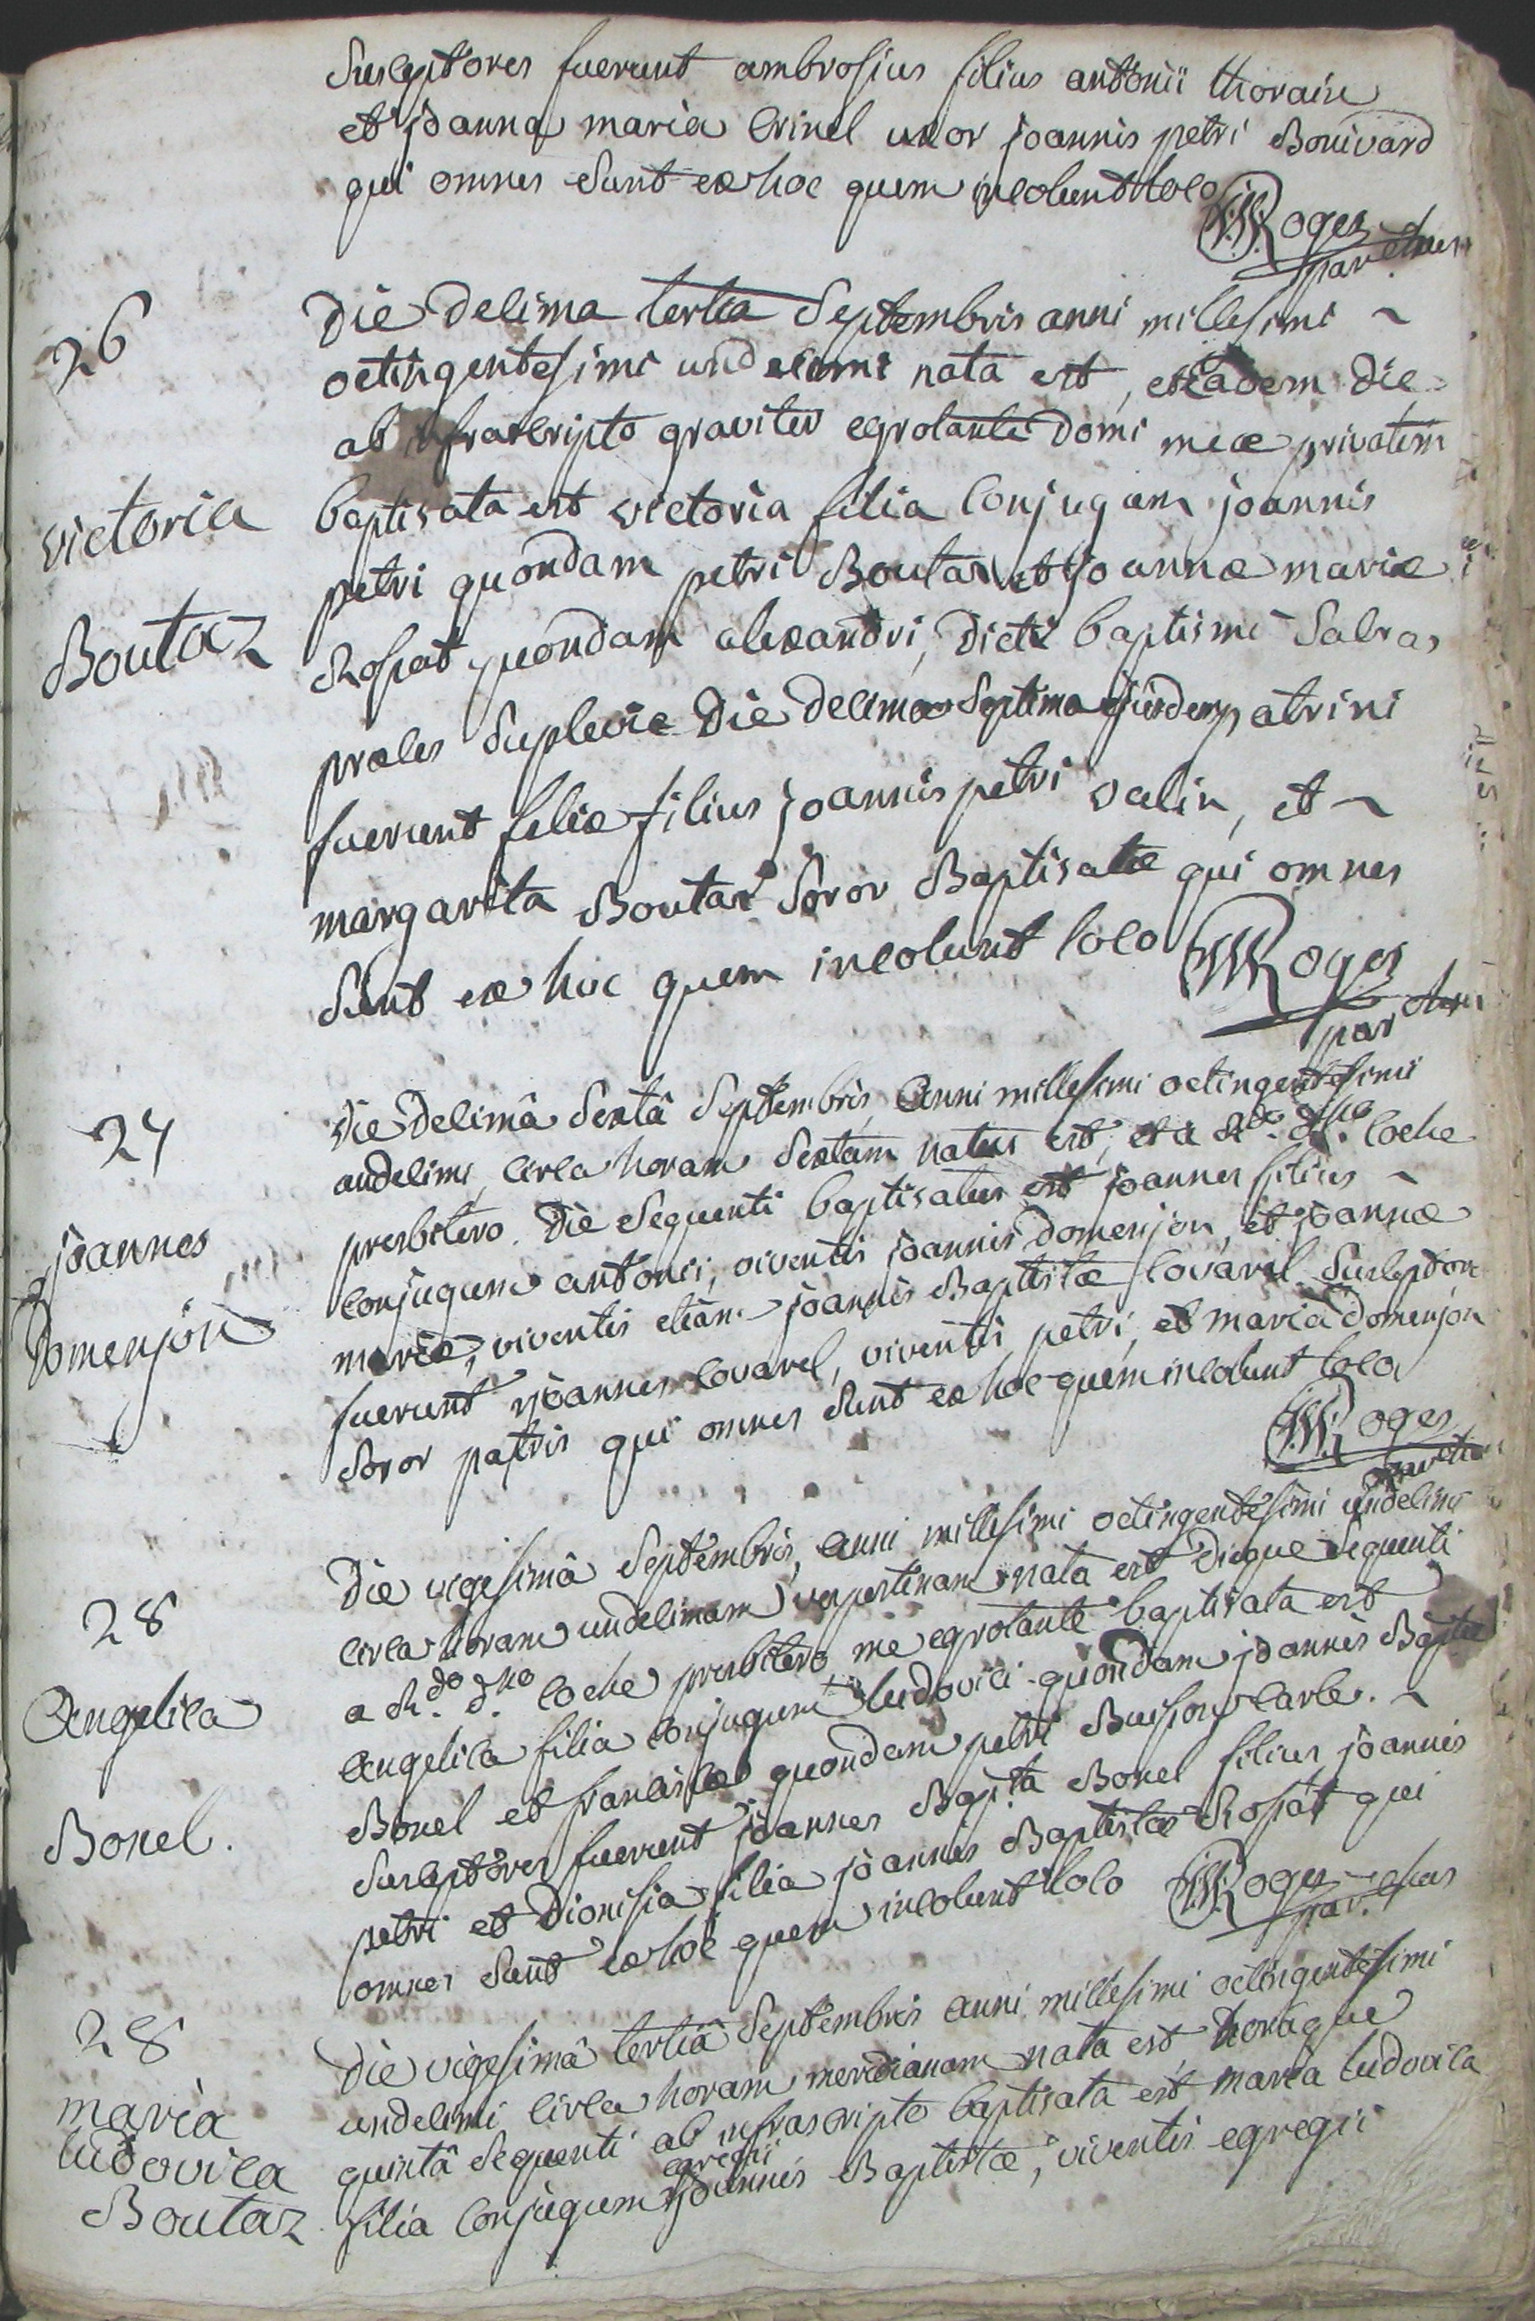 Susceptores fuerunt ambrosius filius antonii thorain
et joanna maria Crinel uxor joannis petri Bouivard
qui omnes Sunt ex hoc quem incolunt loco
Roges
par
26
Die decima tertia Septembris anni millesimi
octingentesimi undecimi nata est, et eadem die
ab infrascripto graviter egrotante domi meæ privatim
victoria
baptisata est victoria filia Conjugum joannis
petri quondam petri Boutaz et joannæ mariæ
Boutaz
Rosset quondam alexandri, dicti baptismi Sacras
præces Suplevie die decima Septima ejusdem patrini
fuerunt felix filius joannis petri valin, et
margarita Boutaz Soror Baptisatæ qui omnes
Sunt ex hoc quem incolunt loco
Roges
par
27
Die decimâ Sextâ Septembris, Anni millesimi octingentesimi
undecimi, circa horam Sextam natus est, et a Rdo. Dno. Coche
presbitero. die Sequenti baptisatus est joannes filius
joannes
Conjugum antonii, viventis joannis domenjon, et joannæ
Domenjon
mariæ, viventis etiam joannis Baptistæ Covarel. Susceptores
fuerunt joannes Covarel, viventis petri, et maria domenjon
Soror patris qui omnes Sunt ex hoc quem incolunt loco
Roges
28
Die vigesimâ Septembris, anni millesimi octingentesimi undecimi
circa horam undecimam vespertinam nata est dieque Sequenti
a R.do D.no Coche presbitero, me egrotante baptisata est
Angelica
Angelica filia Conjugum ludovici quondam joannis Baptæ
Bonel.
Bonel et franciscæ quondam petri Buisson Carle.
Susceptores fuerunt joannes Bap.ta Bonel filius joannis
petri et dionisia filia joannis Baptistæ Rosset qui
omnes Sunt ex hoc quem incolunt loco
Roges
par.
28
Die vigesimâ tertiâ Septembris anni millesimi octingentesimi
undecimi circa horam meridianam nata est horâque
maria
ludovica
Boutaz
quintâ Sequenti ab infrascripto baptisata est maria ludovica
egregii
filia Conjugum joannis Baptistæ, viventis egregii